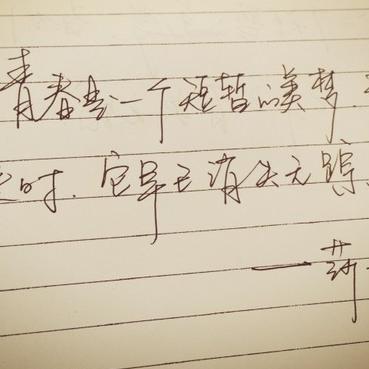 青春是一个短暂的美梦,
时,它早已消失无踪
——莎